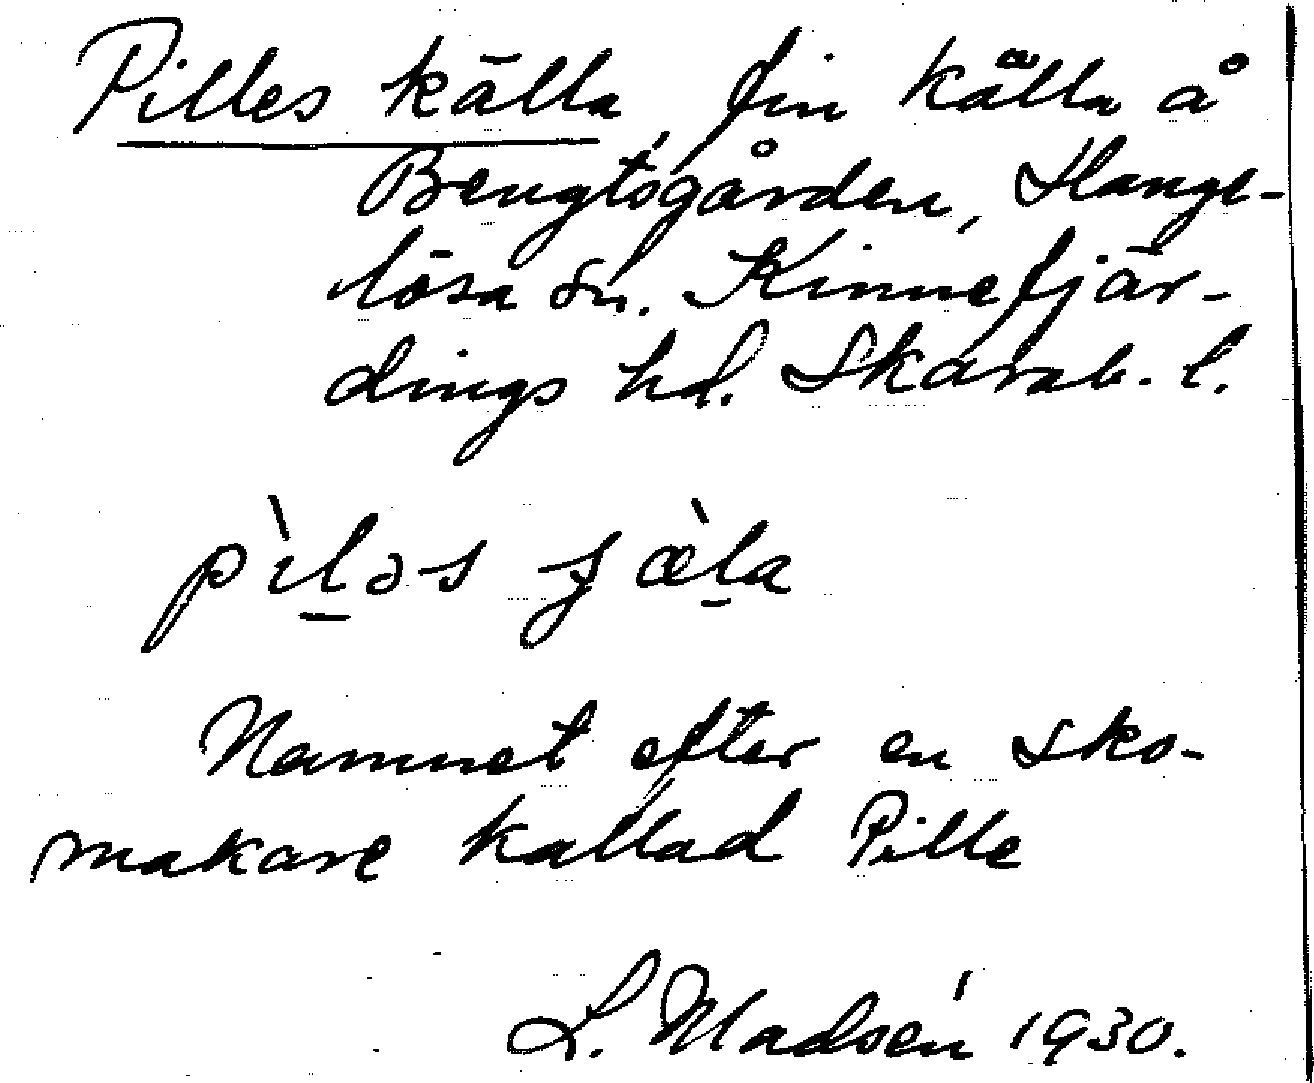 Pilles källa, fin källa å
Bengtsgården, Hange-
lösa sn. Kinnefjär-
dings hd. Skarab. l.
pìḻəs ʃæ̀ḻa
Namnet efter en sko-
makare kallad Pille
L. Madsén 1930.